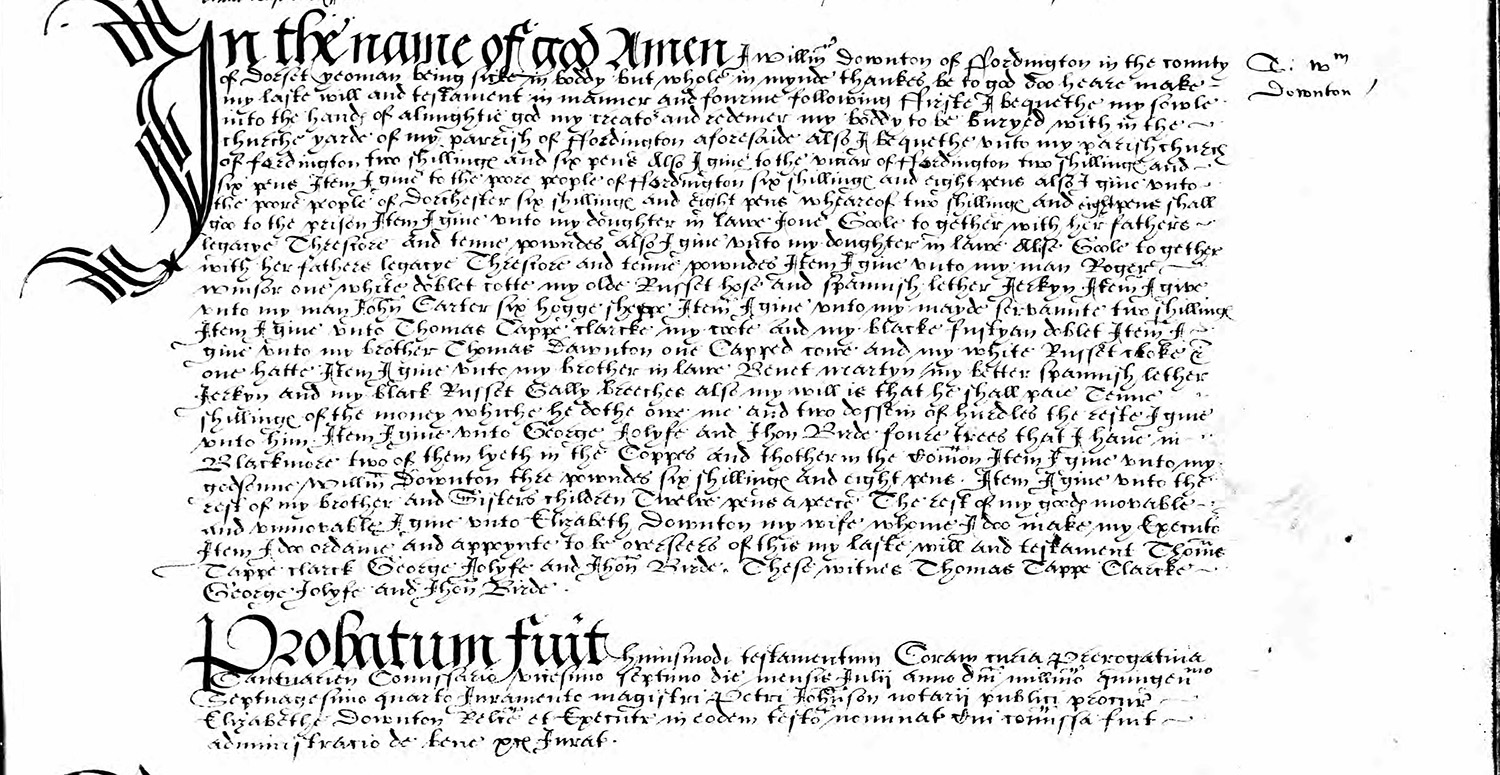 In the name of god Amen I Willm Downton of ffordington in the county
T: Wm
Downton
of Dorset yeoman being sicke in boddy but whole in mynde thankes be to god doo heare make
my laste will and testament in manner and fourme following ffirste I bequethe my sowle
into the handes of almightie god my creator and redemer my boddy to be buryed with in the
churche yarde of my parrish of ffordington aforesaide also I bequethe unto my parish church
of fordington two shillinges and six pens Also I give to the viccar of ffordington two shillinges and
six pens Item I give to the poore people of ffordington six shillinges and eight pens also I give unto
the poore people of Dorchester six shillinges and eight pens wheareof two shillinges and eight pens shall
goo to the prisen Item I give unto my doughter in lawe Jone Goole to gether with her fathers
legacye Threscore and tenne powndes also I give unto my doughter in lawe Alise Goole to gether
with her fathers legacye Threscore and tenne powndes Item I give unto my man Roger
Winsor one white doblet cotte my olde Russet hose and spannish lether Jerkyn Item I give
unto my man John Carter six hogge sheepe Item I give unto my mayde servannte two shillinges
Item I give unto Thomas Tappe clarcke my coote and my blacke fustyan doblet Item I
give unto my brother Thomas Dawnton one Capped cowe and my white Russet cloke &
one hatte Item I give unto my brother in lawe Benet martyn my better spannish lether
Jerkyn and my black Russet Gally breeches also my will is that he shall paie Tenne
shillinges of the money whiche he dothe owe me and two dossein of hurdles the reste I give
unto him Item I give unto George Jolyfe and Jhon Birde foure trees that I have in
Blackmore two of them lyeth in the Coppes and thother in the comon Item I give unto my
godsonne Willm Downton thre powndes six shillinges and eight pens Item I give unto the
rest of my brother and Sisters children Twelve pens a peece The rest of my goodes movable
and unmovable I give unto Elizabeth Downton my wife whome I doo make my Executor
Item I doo ordaine and appoynte to be overseers of this my laste will and testament Thoms
Tappe clarck George Jolyfe and Jhon Birde. These witnes Thomas Tappe Clarcke
George Jolyfe and Jhon Birde.
Probatum fuit huiusmodi testamentum Coram curia Prerogativa
Cantuarien Comissario vicesimo septimo die mensis Julii anno dni millimo quingenmo
Septuagesimo quarto Juramento magistri Petri Johnson notarii publici procur
Elizabethe Downton Relicte et Executr in eodem testo nominat Cui comissa fuit
administracio de bene &c Jurat.